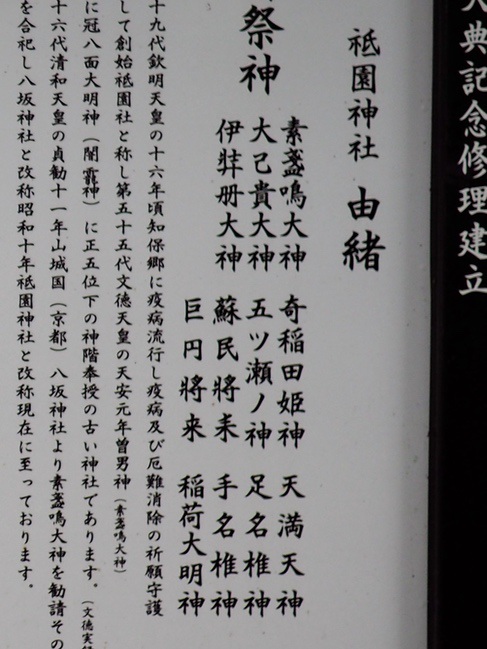 大典記念修理建立
祗園神社 由緒
祭神
素盞嗚大神 奇稲田姫神 天満天神
大己貴大神 五ツ瀬ノ神 足名椎神
伊弉册大神 蘇民將来 手名椎神
巨円將来 稲荷大明神
十九代欽明天皇の十六年頃知保郷に疫病流行し疫病及び厄難消除の祈願守護
して創始祗園社と称し第五十五代文徳天皇の天安元年曽男神(素盞鳴大神)
に冠八面大明神(闇龗神)に正五位下の神階奉授の古い神社であります。(文徳実録
十六代清和天皇の貞勸十一年山城国(京都)八坂神社より素盞鳴大神を勧請その
を合祀し八坂神社と改称昭和十年祗園神社と改称現在に至っております。